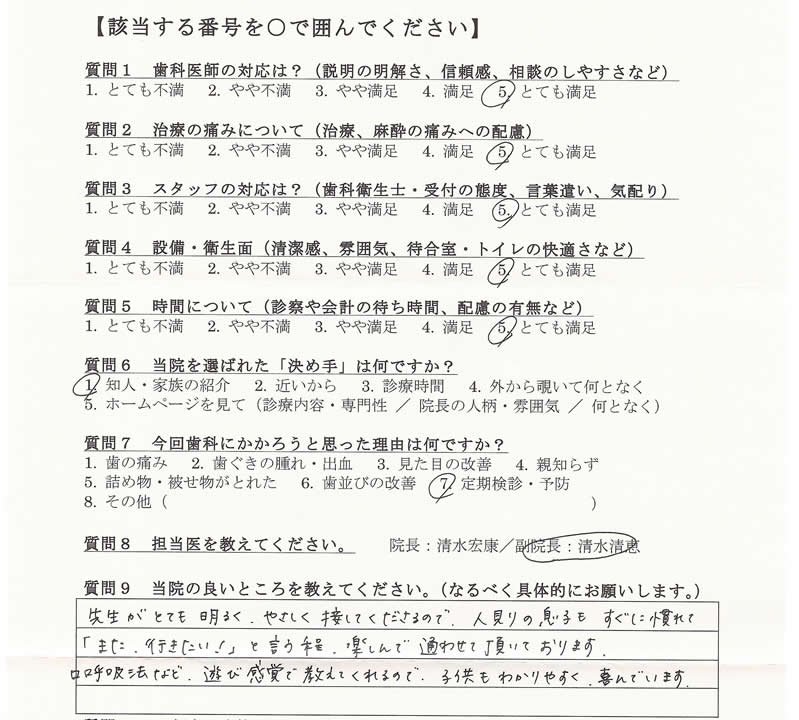 【該当する番号を〇で囲んでください】
質問1 歯科医師の対応は?（説明の明解さ、信頼感、相談のしやすさなど）
1. とても不満 2. やや不満 3. やや満足 4. 満足 5. とても満足
質問2 治療の痛みについて（治療、麻酔の痛みへの配慮）
1. とても不満 2. やや不満 3. やや満足 4. 満足 5. とても満足
質問3 スタッフの対応は?（歯科衛生士・受付の態度、言葉遣い、気配り）
1. とても不満 2. やや不満 3. やや満足 4. 満足 5. とても満足
質問4 設備・衛生面（清潔感、雰囲気、待合室・トイレの快適さなど）
1. とても不満 2. やや不満 3. やや満足 4. 満足 5. とても満足
質問5 時間について（診察や会計の待ち時間、配慮の有無など）
1. とても不満 2. やや不満 3. やや満足 4. 満足 5. とても満足
質問6 当院を選ばれた「決め手」は何ですか?
1. 知人・家族の紹介 2. 近いから 3. 診療時間 4. 外から覗いて何となく
5. ホームページを見て（診療内容・専門性 ／ 院長の人柄・雰囲気 ／ 何となく）
質問7 今回歯科にかかろうと思った理由は何ですか?
1. 歯の痛み 2. 歯ぐきの腫れ・出血 3. 見た目の改善 4. 親知らず
5. 詰め物・被せ物がとれた 6. 歯並びの改善 7. 定期検診・予防
8. その他（ ）
質問8 担当医を教えてください。 院長：清水宏康／副院長：清水清恵
質問9 当院の良いところを教えてください。（なるべく具体的にお願いします。）
先生がとても明るく、やさしく接してくださるので、人見りの息子もすぐに慣れて
「また、行きたい!」と言う程、楽しんで通わせて頂いております。
口呼吸法など、遊び感覚で教えてくれるので、子供もわかりやすく、喜んでいます。